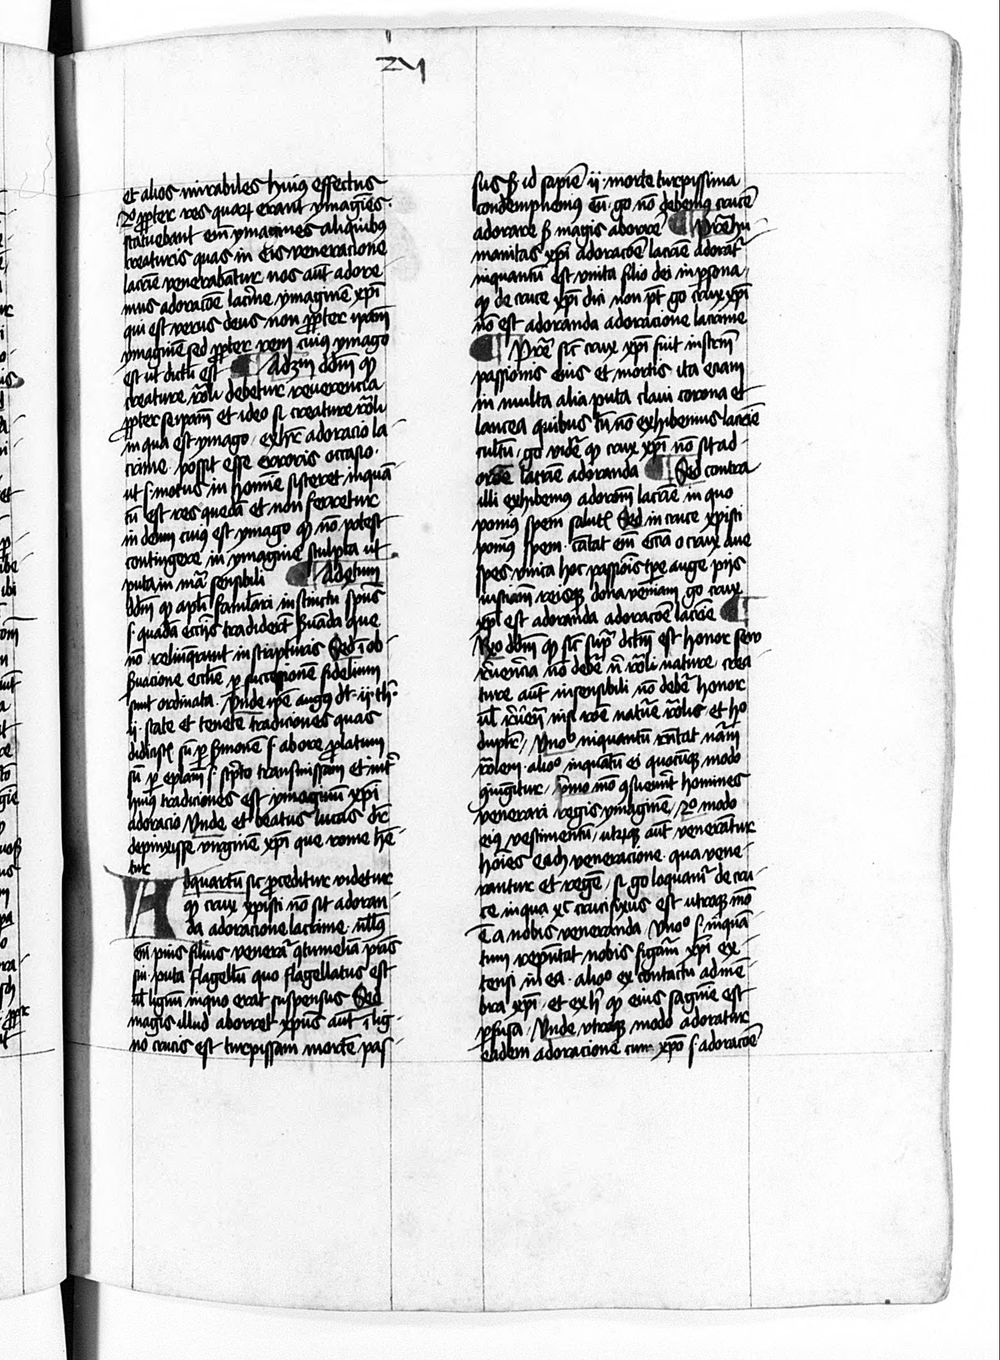 zy
et alios mirabiles huiꝰ effectus
2o ꝓpter res quaꝝ erant ymagīes.
statuebant em̄ ymagines aliquibꝰ
creaturis quas in eis veneracione
lacrie venerabātur nos aūt adore
mus adoracōe lacrīe ymaginē xp̄i
qui est verus deus non ꝓpter ip̄am
ymaginē sed ꝓpter rem cuiꝰ ymago
est ut dictū est Ad 3m dd̄m ꝙ
creature rōli debetur reuerencia
ꝓpter seip̄am et ideo si creature rōli
in qua est ymago exhr̄c adoracio la
crime possit esse erroris occasio.
ut s. motus in hom̄ie sisteret inquā
tū est res quedā et non ferretur
in deum cuiꝰ est ymago qd̄ nō potest
contingere in ymagine sculpta ut
puta in mā sensibili Ad 4tum
dd̄m ꝙ apl̄i familiari instinctu spūs
s. quedā eccīis tradiderūt ꝰuāda que
nō relinq̄runt in scripturis Sed ī ob
ꝰuacione ecclīe ꝑ successionē fidelium
sunt ordinata. Vnde ip̄e augꝰ dt. ii. th̄.
ii. state et tenete tradiciones quas
didicist̄ siū ꝑ sermonē s. ab ore ꝓlatum
siū ꝑ ep̄lam s. scrīpto transmissam et int̄
huiꝰ tradiciones est ymaginū xp̄i
adoracio Vnde et beatus lucas dr̄
depinxisse virginē xp̄i que rome hē
tur
Ad quartū sic ꝓceditur videtur
ꝙ crux xp̄isti nō sit adoran
da adoracione lacrime. nullꝰ
em̄ pius filius venerat̄ ꝯtumeliā pr̄is
sui. puta flagellū quo flagellatus est
ul̄ lignū in quo erat suspensus Sed
magis illud aborret xp̄us aūt ī lig
no crucis est turpissam mortē pas
sus ẜ id sapiē ii. morte turpissima
condempnemꝰ eū. go nō debemꝰ crucē
adorare ẜ magis aborrere Pret̄ hu
manitas xp̄i adoracōe lacrie adorat̄
inquantū est vnita filio dei in ꝑsona
qd̄ de cruce xp̄i dici non pt̄ go crux xp̄i
nō est adoranda adoracione lacrime
Pret̄ sic̄ crux xp̄i fuit instrm̄
passionis eius et mortis ita eciam
in multa alia puta claui corona et
lancea quibus tn̄ nō exhibemus lacrie
cultū. go videt̄ ꝙ crux xp̄i nō sit ad
oracōe lacrie adoranda Sed contra
illi exhibemus adoracōem lacrie in quo
ponimus spem salutꝭ Sed in cruce xp̄isti
ponimꝰ spem. cantat em̄ eccīa o crux aue
spes vnica hoc passiōis tp̄e auge piis
iusticiam reisqꝫ dona veniam go crux
xp̄i est adoranda adoracōe lacrie
Rn̄o dd̄m ꝙ sic̄ supᵃ dictū est honor seu
reuerencia nō debet̄ n̄ rōli nature crea
ture aūt insensibili nō debet̄ honor
ul̄ reuerē nisi rōe nature rōlis et hoc
duplr̄ Vnoº inquantū rn̄tat nām
rōlem. alioº inquātū ei quocūqꝫ modo
ꝯiugitur. pͥmo mō ꝯsueuerūt homines
venerari regis ymaginē 2o modo
eiꝰ vestimentū. utrūqꝫ aūt venerātur
hoīes eadē veneracione. qua vene
rantur et regē. si go loquam̄ de cru
ce in qua xc̄ crucifixus est utroqꝫ mō
ē a nobis veneranda Vnoº s. inquā
tum repn̄tat nobis figurā xp̄i ex
tensi in ea. alioº ex contactū ad mē
bra xp̄i et ex h̄ ꝙ eius sanguīe est
ꝑfusa. Vnde vtroqꝫ modo adoratur
eadem adoracione cum xp̄o s. adoracōe